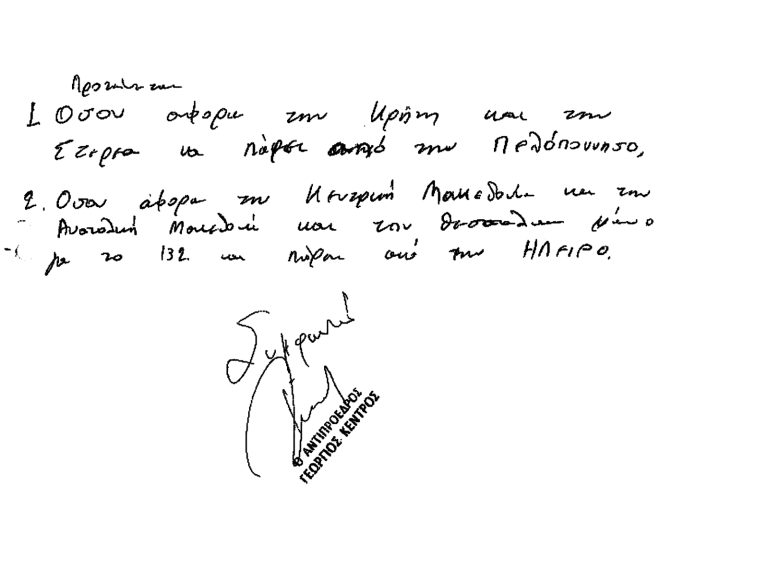 Προτείνεται
1. Οσον αφορα την Κρήτη και την
Στερεα να πάρει από την Πελόπουνησο,
2. Οσον αφορα την Κεντρική Μακεδονία και την
Ανατολική Μακεδονία και την Θεσσαλια μόνο
με το 132 να πάρει από την ΗΠΕΙΡΟ.
Ο ΑΝΤΙΠΡΟΕΔΡΟΣ
ΓΕΩΡΓΙΟΣ ΚΕΝΤΡΟΣ